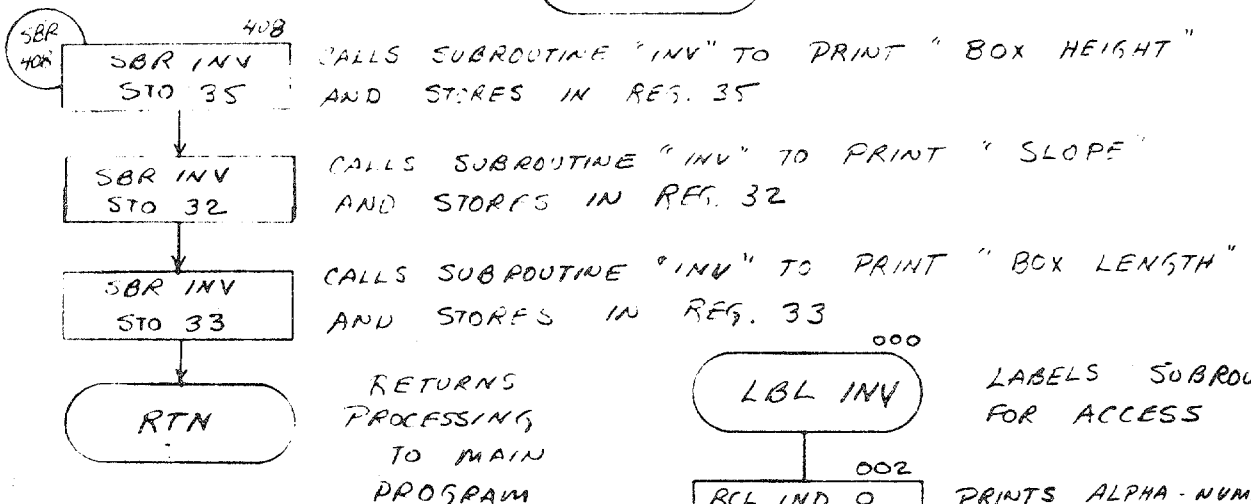 SBR
408
408
SBR INV
STO 35
CALLS SUBROUTINE "INV" TO PRINT "BOX HEIGHT"
AND STORES IN REG. 35
SBR INV
STO 32
CALLS SUBROUTINE "INV" TO PRINT "SLOPE"
AND STORES IN REG. 32
SBR INV
STO 33
CALLS SUBROUTINE "INV" TO PRINT "BOX LENGTH"
AND STORES IN REG. 33
RTN
RETURNS
PROCESSING
TO MAIN
PROGRAM
000
LBL INV
LABELS SUBROU
FOR ACCESS
002
RCL IND 0
PRINTS ALPHA-NUM